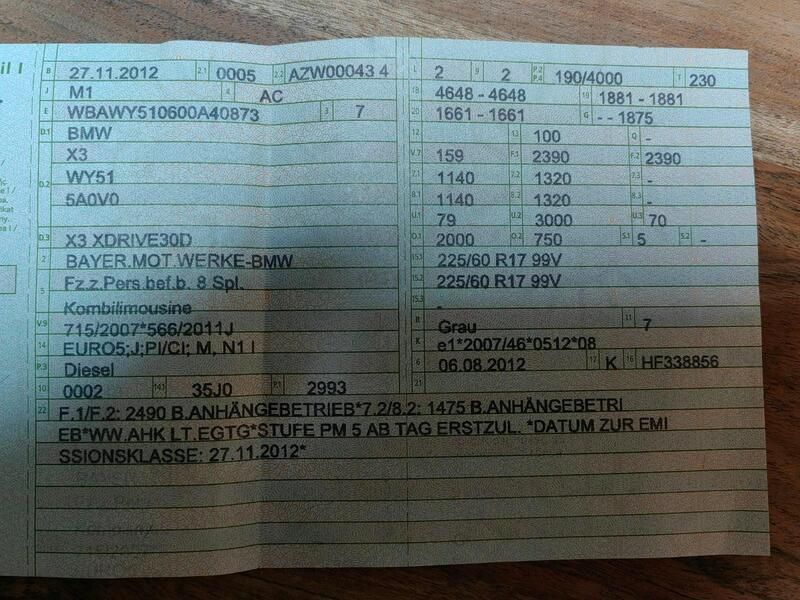 il I
B 27.11.2012 2.1 0005 2.2 AZW00043 4
J M1 4 AC
E WBAWY510600A40873 3 7
D.1 BMW
X3
D.2 WY51
5A0V0
D.3 X3 XDRIVE30D
2 BAYER.MOT.WERKE-BMW
5 Fz.z.Pers.bef.b. 8 Spl.
Kombilimousine
V.9 715/2007*566/2011J
14 EURO5;J;PI/CI; M, N1 I
P.3 Diesel
10 0002 14.1 35J0 P.1 2993
L 2 9 2 P.2 P.4 190/4000 T 230
18 4648 - 4648 19 1881 - 1881
20 1661 - 1661 G - - 1875
12 13 100 Q -
V.7 159 F.1 2390 F.2 2390
7.1 1140 7.2 1320 7.3 -
8.1 1140 8.2 1320 8.3 -
U.1 79 U.2 3000 U.3 70
O.1 2000 O.2 750 S.1 5 S.2 -
15.1 225/60 R17 99V
15.2 225/60 R17 99V
15.3 -
R Grau 11 7
K e1*2007/46*0512*08
6 06.08.2012 17 K 16 HF338856
21
22 F.1/F.2: 2490 B.ANHÄNGEBETRIEB*7.2/8.2: 1475 B.ANHÄNGEBETRI
EB*WW.AHK LT.EGTG*STUFE PM 5 AB TAG ERSTZUL. *DATUM ZUR EMI
SSIONSKLASSE: 27.11.2012*